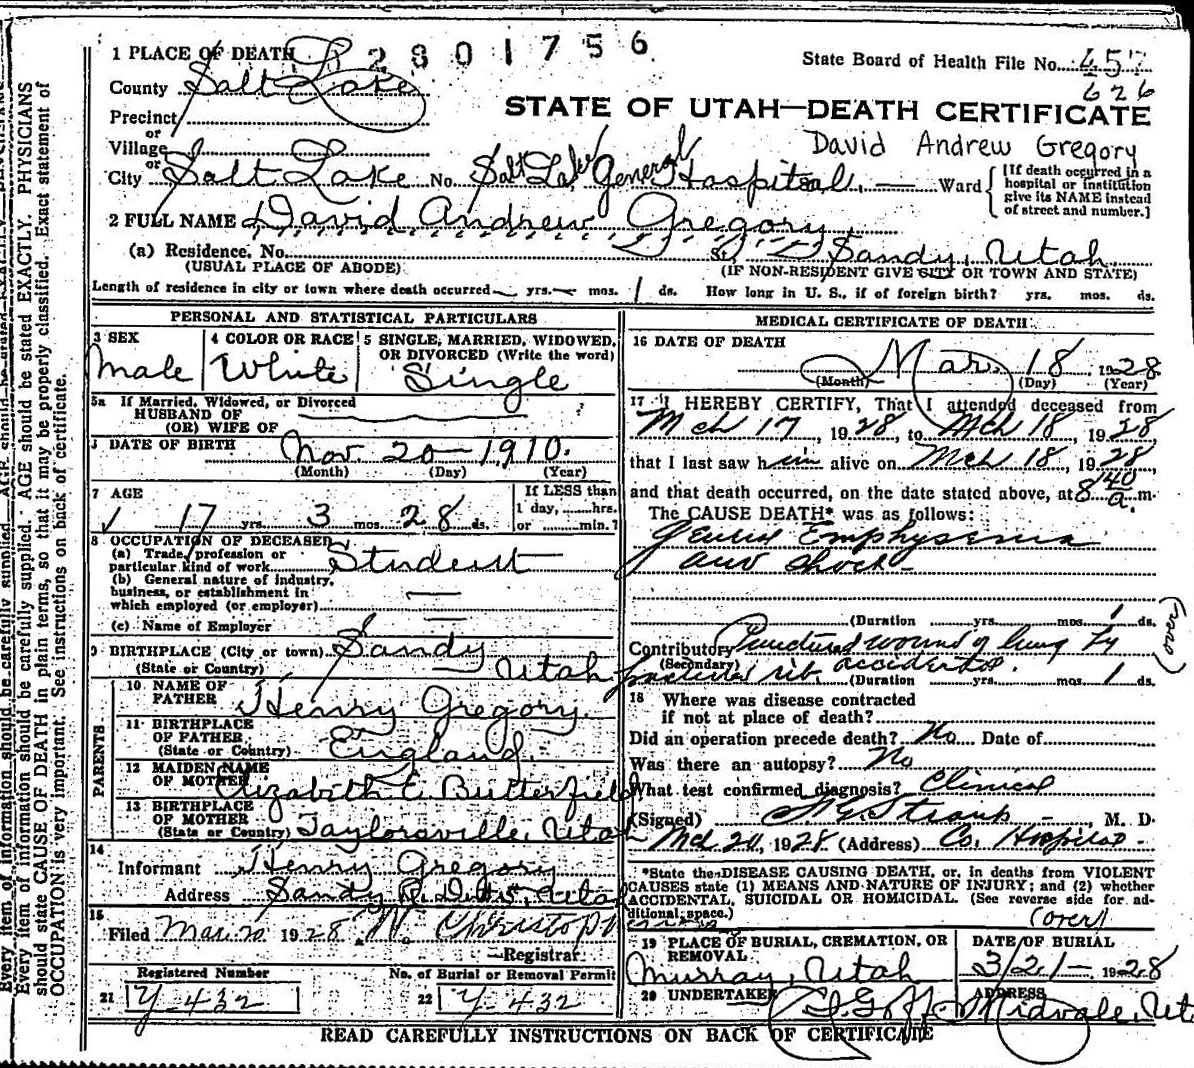 1 PLACE OF DEATH 2801756
State Board of Health File No. 457
626
County Salt Lake
STATE OF UTAH—DEATH CERTIFICATE
Precinct
or
Village
David Andrew Gregory
or
City Salt Lake No. Salt Lake General Hospital. — Ward
[If death occurred in a hospital or institution give its NAME instead of street and number.]
2 FULL NAME David Andrew Gregory
(a) Residence. No. St. Sandy, Utah.
(USUAL PLACE OF ABODE) (IF NON-RESIDENT GIVE CITY OR TOWN AND STATE)
Length of residence in city or town where death occurred — yrs. — mos. 1 ds. How long in U. S., if of foreign birth? yrs. mos. ds.
PERSONAL AND STATISTICAL PARTICULARS
3 SEX
Male
4 COLOR OR RACE
White
5 SINGLE, MARRIED, WIDOWED,
OR DIVORCED (Write the word)
Single
5a If Married, Widowed, or Divorced
HUSBAND OF
(OR) WIFE OF
DATE OF BIRTH Nov. 20 — 1910.
(Month) (Day) (Year)
7 AGE
17 yrs. 3 mos. 28 ds.
If LESS than
1 day, hrs.
or min.?
8 OCCUPATION OF DECEASED
(a) Trade, profession or
particular kind of work Student
(b) General nature of industry,
business, or establishment in
which employed (or employer) —
(c) Name of Employer
9 BIRTHPLACE (City or town) Sandy
(State or Country) Utah
PARENTS
10 NAME OF
FATHER Henry Gregory.
11 BIRTHPLACE
OF FATHER
(State or Country) England.
12 MAIDEN NAME
OF MOTHER Elizabeth E. Butterfield
13 BIRTHPLACE
OF MOTHER
(State or Country) Taylorsville, Utah
14
Informant Henry Gregory
Address Sandy R. D. Utah
15
Filed Mar. 20 1928
Registrar
Registered Number
21 Y-432
No. of Burial or Removal Permit
22 Y-432
MEDICAL CERTIFICATE OF DEATH
16 DATE OF DEATH
Mar. 18 1928
(Month) (Day) (Year)
17 I HEREBY CERTIFY, That I attended deceased from
Mch 17, 1928, to Mch 18, 1928
that I last saw him alive on Mch 18, 1928,
and that death occurred, on the date stated above, at 8 40 a. m.
The CAUSE DEATH* was as follows:
Emphysema
and shock
(Duration yrs. mos. 1 ds.
Contributory Punctured wound of lung by
(Secondary) accidental.
fractured rib. (Duration yrs. mos. 1 ds.
(over)
18 Where was disease contracted
if not at place of death?
Did an operation precede death? No Date of
Was there an autopsy? No
What test confirmed diagnosis? Clinical
(Signed) , M. D.
Mch 20, 1928 (Address) Co. Hospital.
*State the DISEASE CAUSING DEATH, or, in deaths from VIOLENT
CAUSES state (1) MEANS AND NATURE OF INJURY; and (2) whether
ACCIDENTAL, SUICIDAL OR HOMICIDAL. (See reverse side for ad-
ditional space.)
(over)
19 PLACE OF BURIAL, CREMATION, OR
REMOVAL
Murray, Utah
DATE OF BURIAL
3/21— 1928
20 UNDERTAKER
ADDRESS
Midvale, Ut.
READ CAREFULLY INSTRUCTIONS ON BACK OF CERTIFICATE
Every item of information should be carefully supplied. AGE should be stated EXACTLY. PHYSICIANS
should state CAUSE OF DEATH in plain terms, so that it may be properly classified. Exact statement of
OCCUPATION is very important. See instructions on back of certificate.